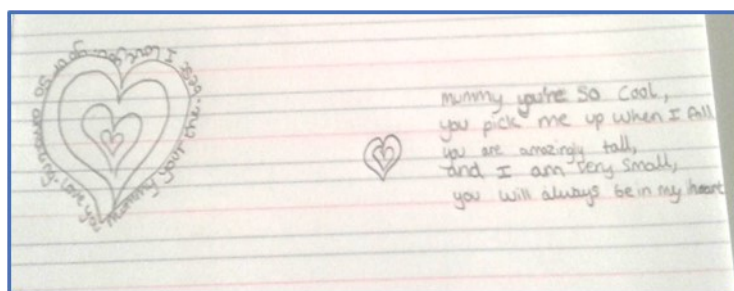 mummy your the best I love you your so amazing. Love you
mummy you're so cool,
you pick me up when I fall
you are amazingly tall,
and I am very small,
you will always be in my heart